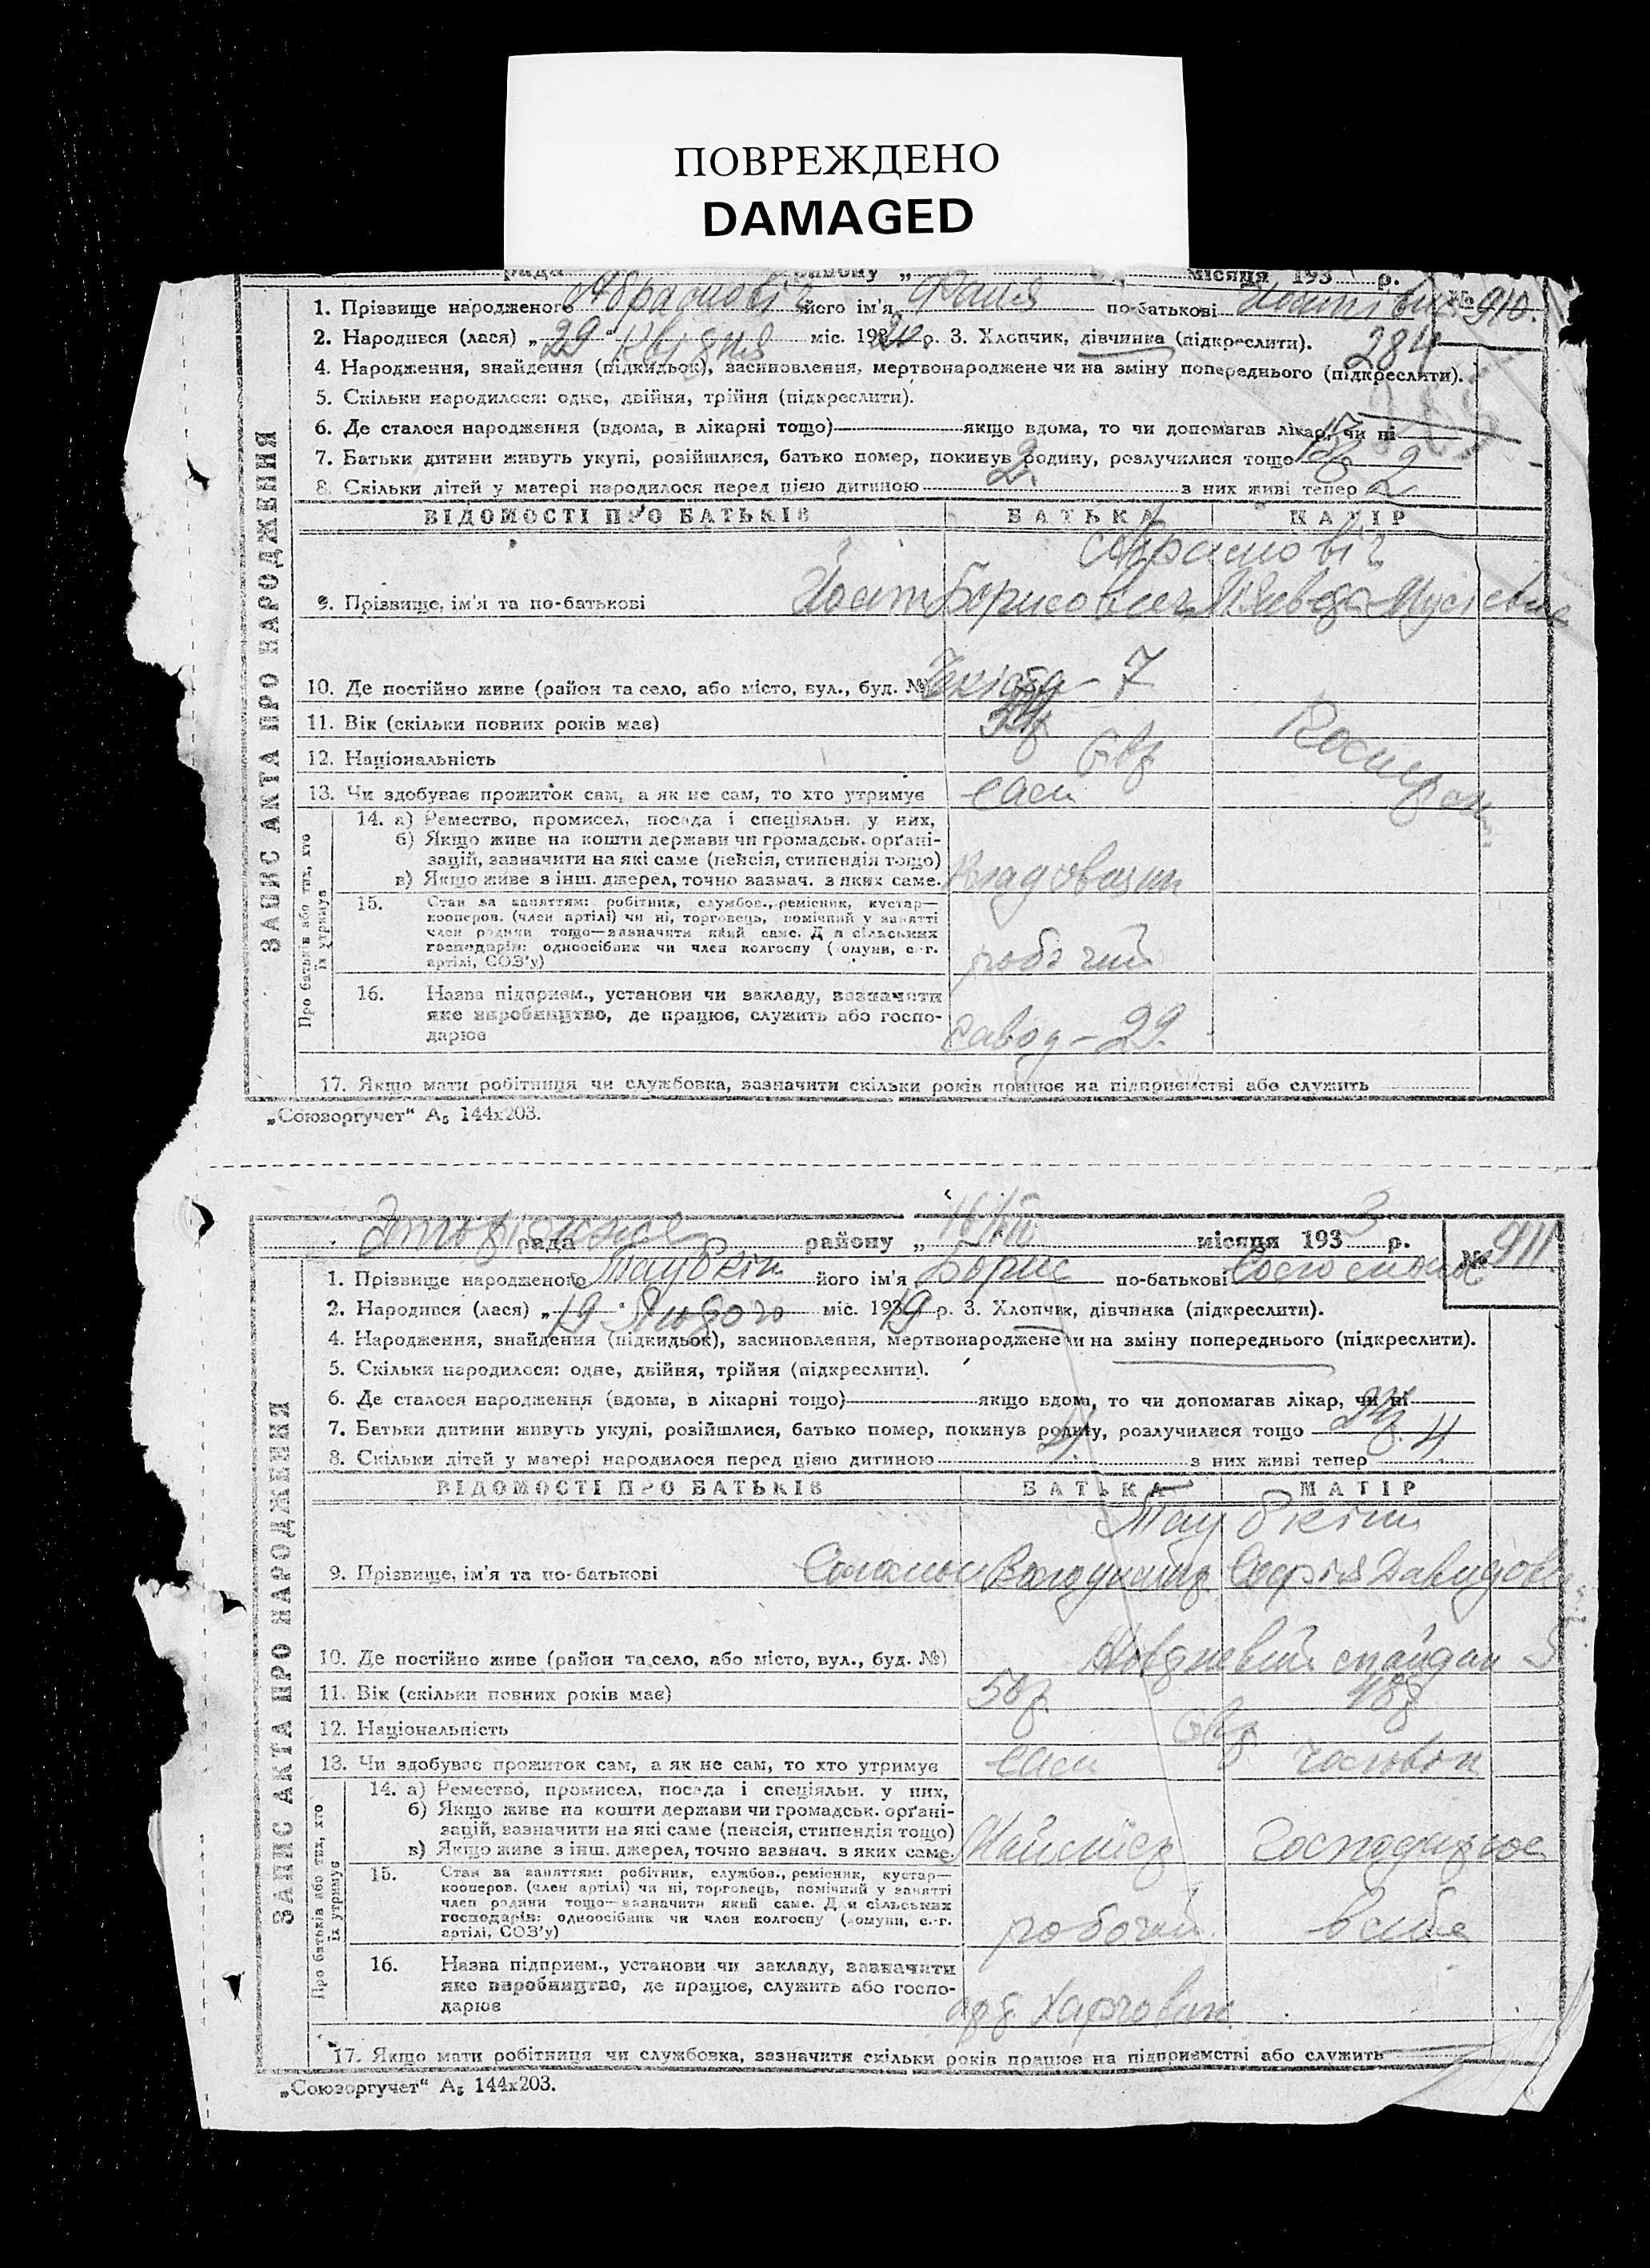 ПОВРЕЖДЕНО
DAMAGED
рада району „ місяця 193 р.
1. Прізвище народженого Абрамовіч його ім'я Фаня по-батькові № 910.
2. Народився (лася) „29" Квітня міс. 19 р. 3. Хлопчик, дівчинка (підкреслити). 284
4. Народження, знайдення (підкидьок), засиновлення, мертвонароджене чи на зміну попереднього (підкреслити).
5. Скільки народилося: одне, двійня, трійня (підкреслити).
6. Де сталося народження (вдома, в лікарні тощо) якщо вдома, то чи допомагав лікар, чи ні
7. Батьки дитини живуть укупі, розійшлися, батько помер, покинув родину, розлучилися тощо
8. Скільки дітей у матері народилося перед цією дитиною 2. з них живі тепер 2
ЗАПИС АКТА ПРО НАРОДЖЕННЯ
ВІДОМОСТІ ПРО БАТЬКІВ БАТЬКА МАТІР
Абрамовіч
9. Прізвище, ім'я та по-батькові Борисович Мусієвна
10. Де постійно живе (район та село, або місто, вул., буд. №) 7
11. Вік (скільки повних років має)
12. Національність Євр
13. Чи здобуває прожиток сам, а як не сам, то хто утримує сам
Про батьків або тих, хто їх утримує
14. а) Ремество, промисел, посада і спеціяльн. у них,
б) Якщо живе на кошти держави чи громадськ. орґані-
зацій, зазначити на які саме (пенсія, стипендія тощо)
в) Якщо живе з інш. джерел, точно зазнач. з яких саме. Кладовщик
15. Стан за заняттям: робітник, службов., ремісник, кустар—
кооперов. (член артілі) чи ні, торговець, помічний у занятті
член родини тощо—зазначити який саме. Для сільських
господарів: одноосібник чи член колгоспу (комуни, с.-г.
артілі, СОЗ'у) робочий
16. Назва підприєм., установи чи закладу, зазначити
яке виробництво, де працює, служить або госпо-
дарює завод – 29.
17. Якщо мати робітниця чи службовка, зазначити скільки років працює на підприємстві або служить
„Союзоргучет" А₅ 144х203.
рада району „ місяця 1933 р. № 911.
1. Прізвище народженого Таубкін його ім'я Борис по-батькові
2. Народився (лася) „19" Лютого міс. 1919 р. 3. Хлопчик, дівчинка (підкреслити).
4. Народження, знайдення (підкидьок), засиновлення, мертвонароджене чи на зміну попереднього (підкреслити).
5. Скільки народилося: одне, двійня, трійня (підкреслити).
6. Де сталося народження (вдома, в лікарні тощо) якщо вдома, то чи допомагав лікар, чи ні
7. Батьки дитини живуть укупі, розійшлися, батько помер, покинув родину, розлучилися тощо
8. Скільки дітей у матері народилося перед цією дитиною 4. з них живі тепер 4
ЗАПИС АКТА ПРО НАРОДЖЕННЯ
ВІДОМОСТІ ПРО БАТЬКІВ БАТЬКА МАТІР
Таубкіни
9. Прізвище, ім'я та по-батькові Соломон Володимир Софія Давидовна
10. Де постійно живе (район та село, або місто, вул., буд. №) майдан 5
11. Вік (скільки повних років має) 50р 48р
12. Національність Євр
13. Чи здобуває прожиток сам, а як не сам, то хто утримує сам чоловік
Про батьків або тих, хто їх утримує
14. а) Ремество, промисел, посада і спеціяльн. у них,
б) Якщо живе на кошти держави чи громадськ. орґані-
зацій, зазначити на які саме (пенсія, стипендія тощо)
в) Якщо живе з інш. джерел, точно зазнач. з яких саме. Майстер господарює
15. Стан за заняттям: робітник, службов., ремісник, кустар—
кооперов. (член артілі) чи ні, торговець, помічний у занятті
член родини тощо—зазначити який саме. Для сільських
господарів: одноосібник чи член колгоспу (комуни, с.-г.
артілі, СОЗ'у) робочий в себе
16. Назва підприєм., установи чи закладу, зазначити
яке виробництво, де працює, служить або госпо-
дарює арт Харчовик
17. Якщо мати робітниця чи службовка, зазначити скільки років працює на підприємстві або служить
„Союзоргучет" А₅ 144х203.